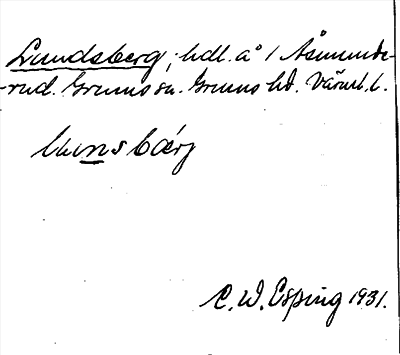 Lundsberg, hdl. å 1 Åsmunde-
-rud. Grums sn. Grums hd. Värml. l.
lunsbærj
C. W. Esping 1931.